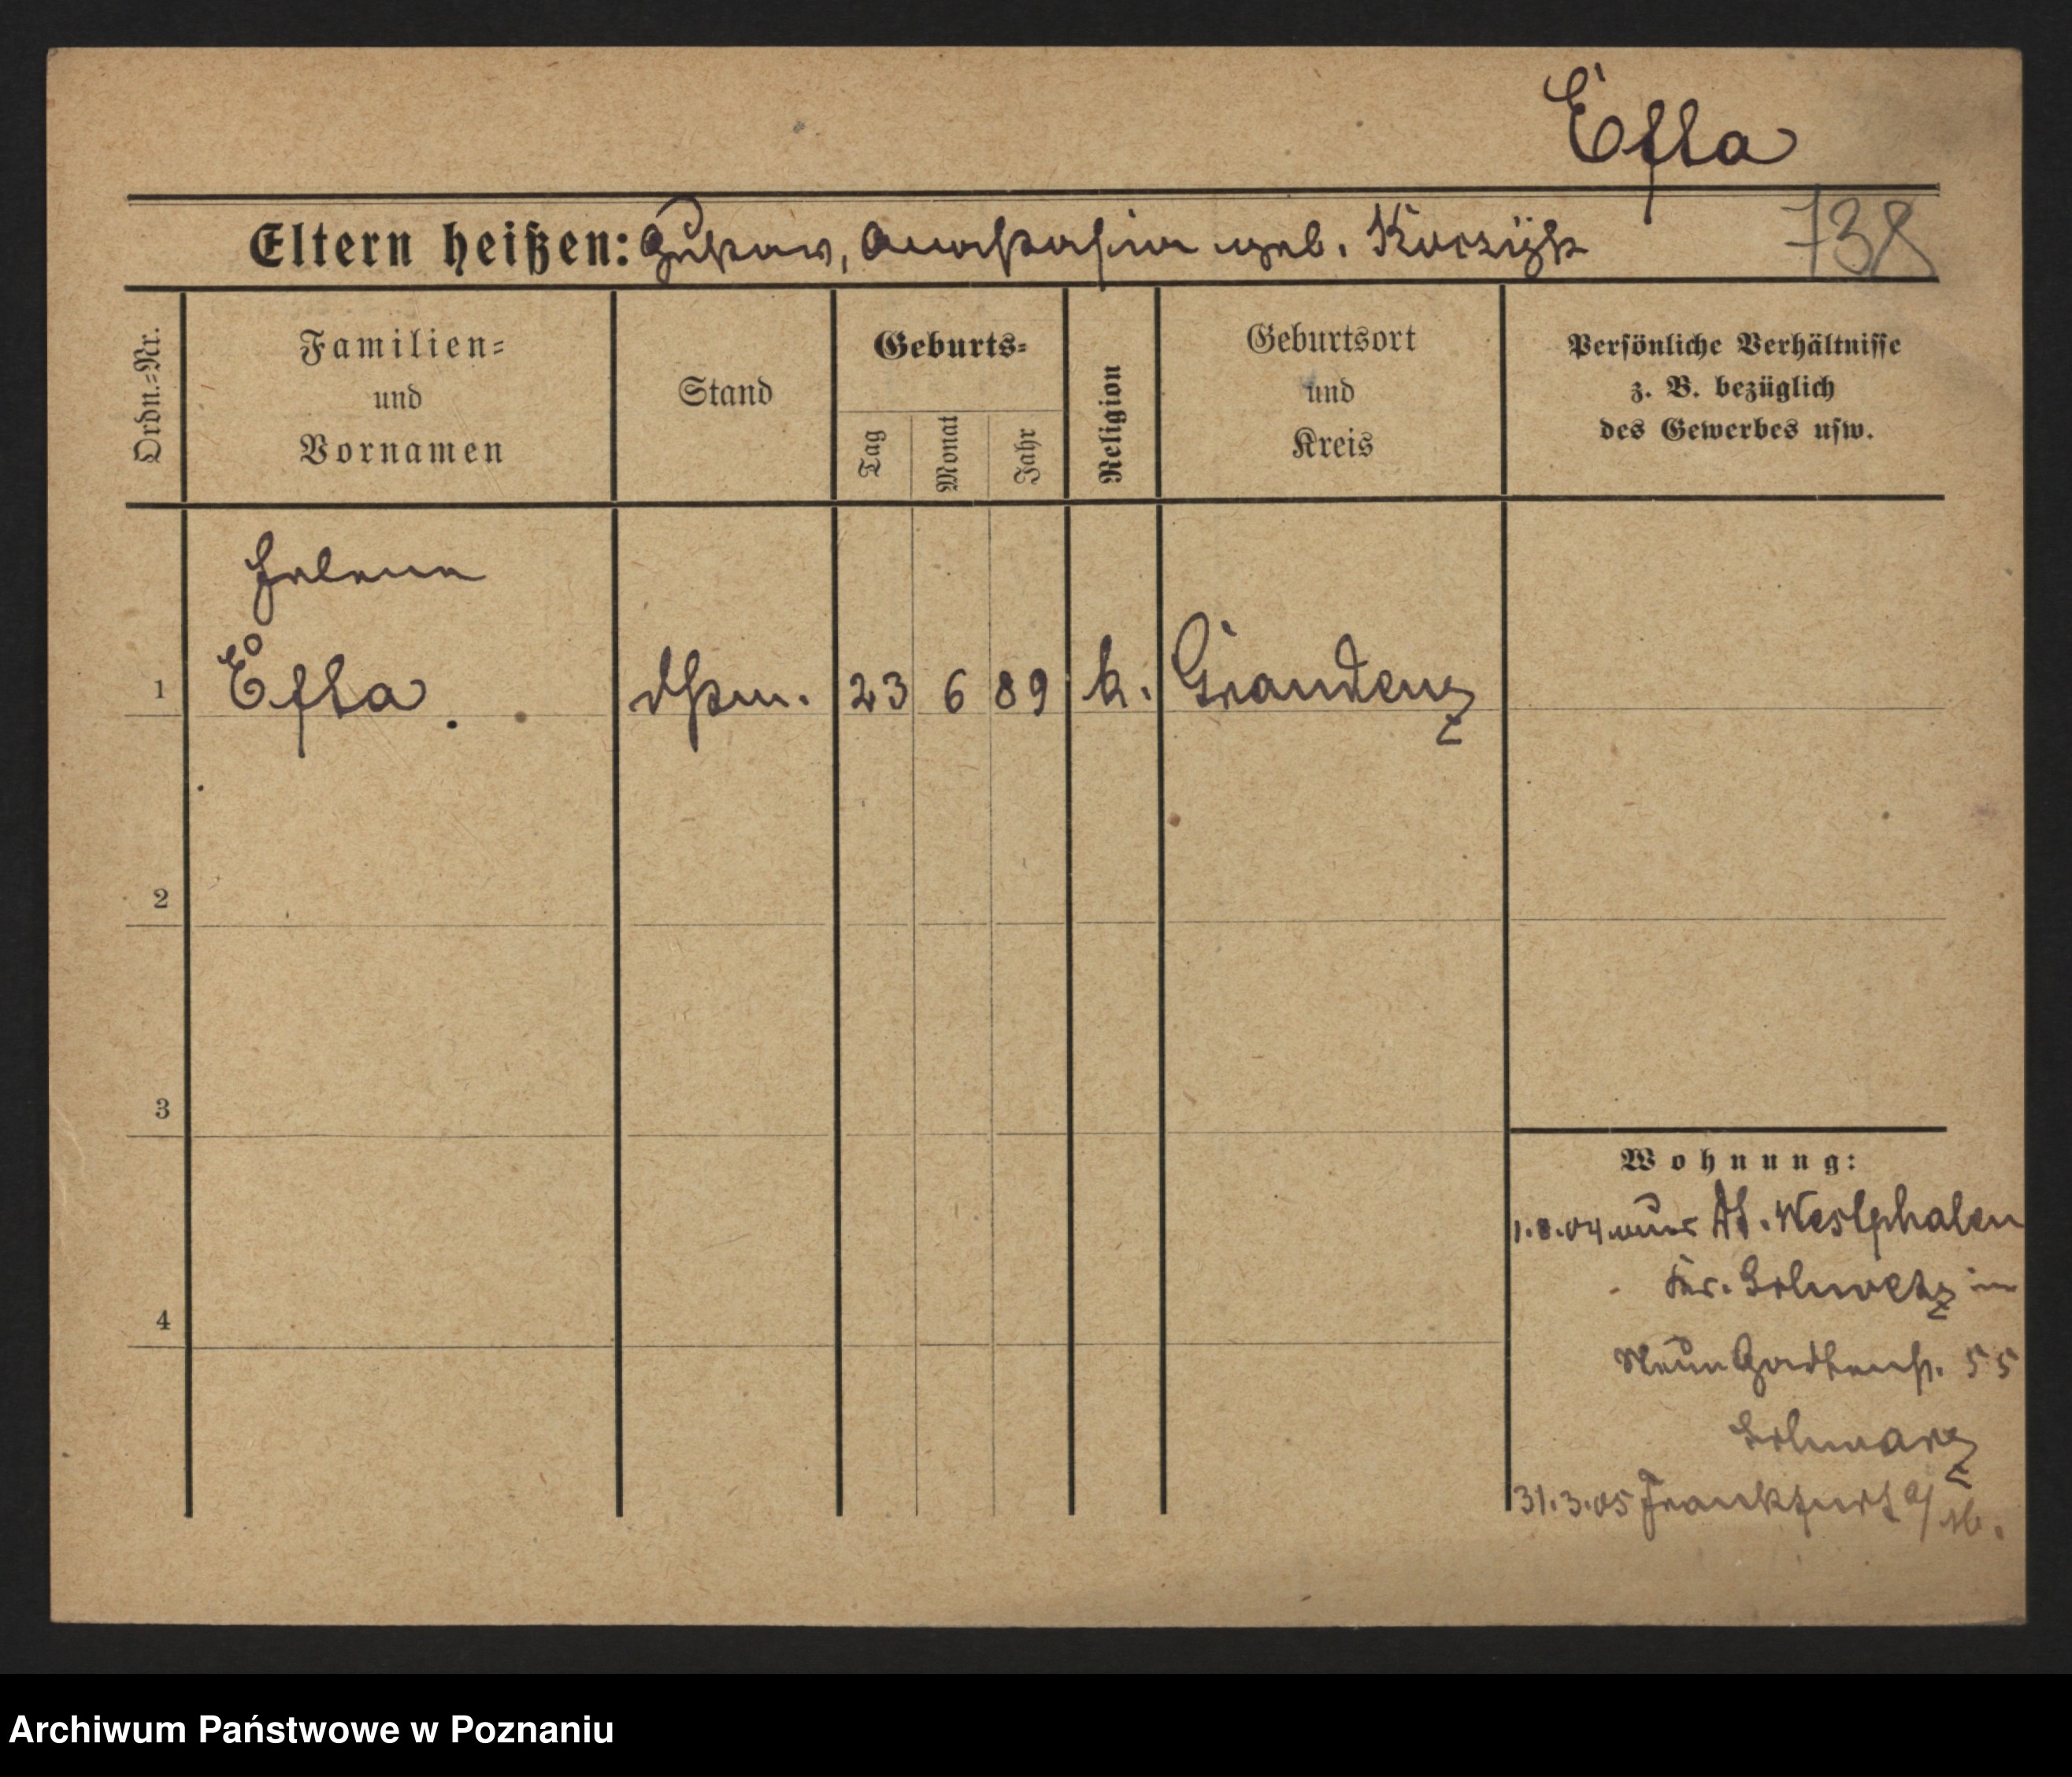 Efta
Eltern heißen: Gustav, Anastasia geb.
738
Ordn.=Nr.
Familien=
und
Vornamen
Stand
Geburts=
Tag
Monat
Jahr
Religion
Geburtsort
und
Kreis
Persönliche Verhältnisse
z. B. bezüglich
des Gewerbes usw.
Helene
1 Efta. 23 6 89 k. Graudenz
2
3
4
Wohnung:
1.8.04 Westphalen
Kr. Schwetz in
Neue Gartenstr. 55
Schwarz
31.3.05 Frankfurt a/M.
Archiwum Państwowe w Poznaniu